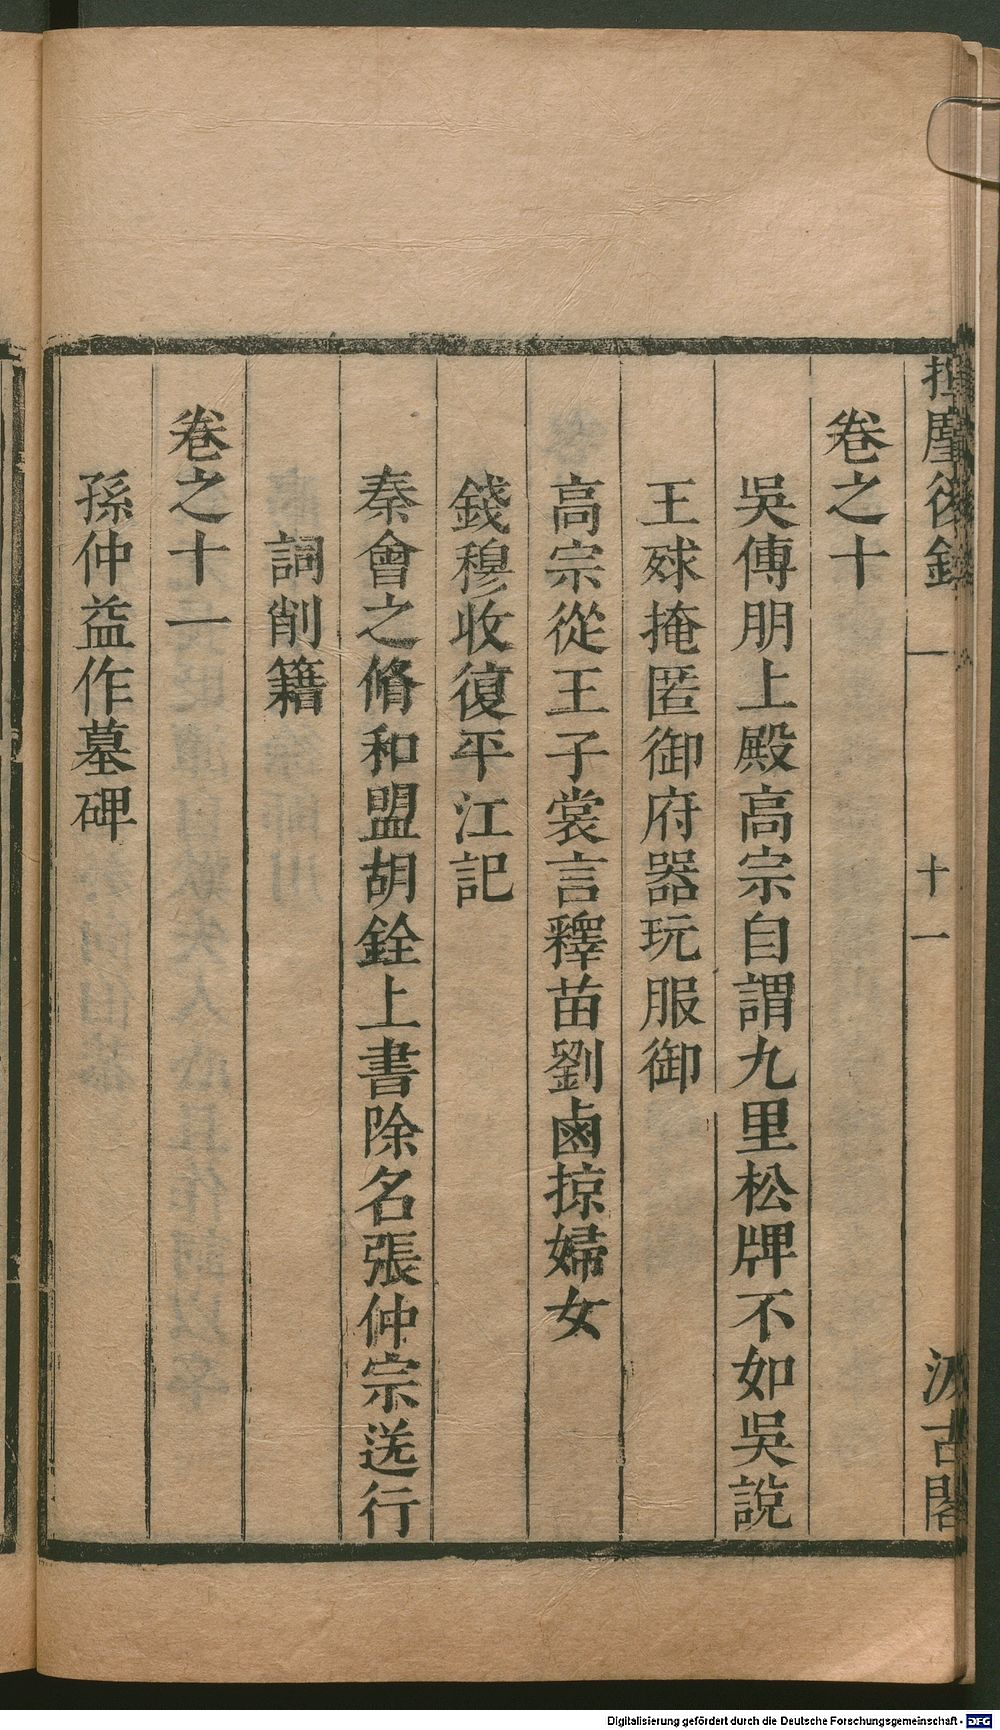 揮麈後錄
一
十一
汲古閣
卷之十
吳傅朋上殿高宗自謂九里松牌不如吳說
王球掩匿御府器玩服御
高宗從王子裳言釋苗劉鹵掠婦女
錢穆收復平江記
秦會之脩和盟胡銓上書除名張仲宗送行
詞削籍
卷之十一
孫仲益作墓碑
Digitalisierung gefördert durch die Deutsche Forschungsgemeinschaft - DFG